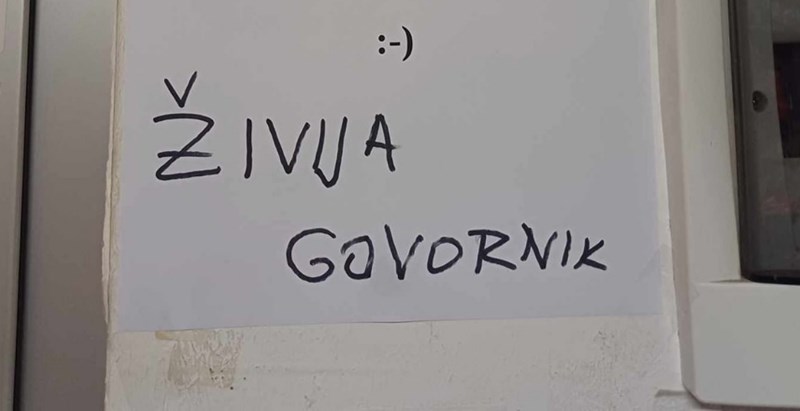 :-)
ŽIVIJA
GOVORNIK